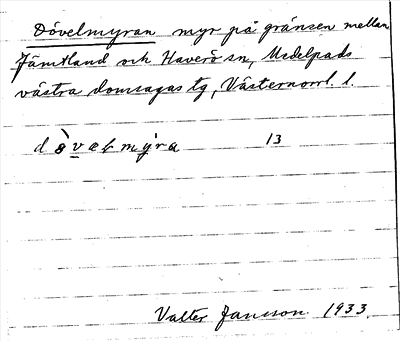 Dövelmyran myr på gränsen mellan
Jämtland och Haverö sn, Medelpads
västra domsagas tg, Västernorrl. l.
dɵ̀vælmyra 13
Valter Jansson 1933.